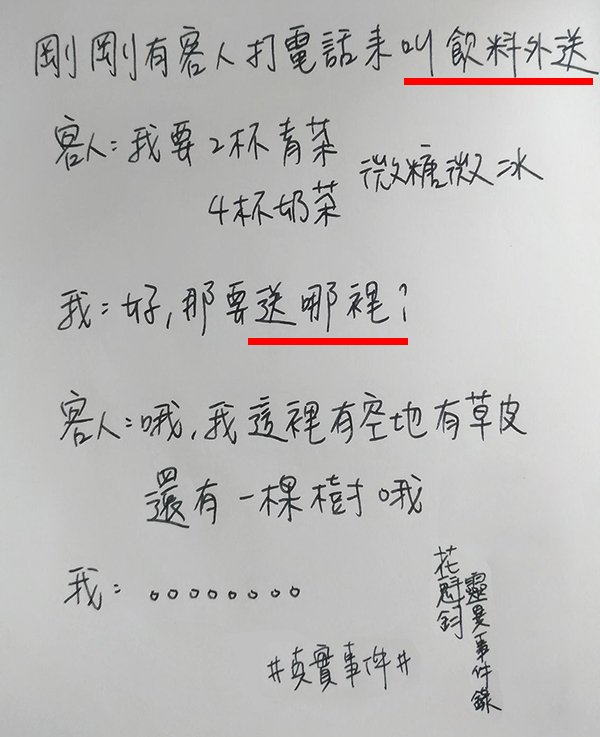 剛剛有客人打電話來叫飲料外送
客人:我要2杯青茶
4杯奶茶
微糖微冰
我:好,那要送哪裡?
客人:哦,我這裡有空地有草皮
還有一棵樹哦
我:。。。。。。。。
#真實事件#
花魁鈞
靈異事件錄